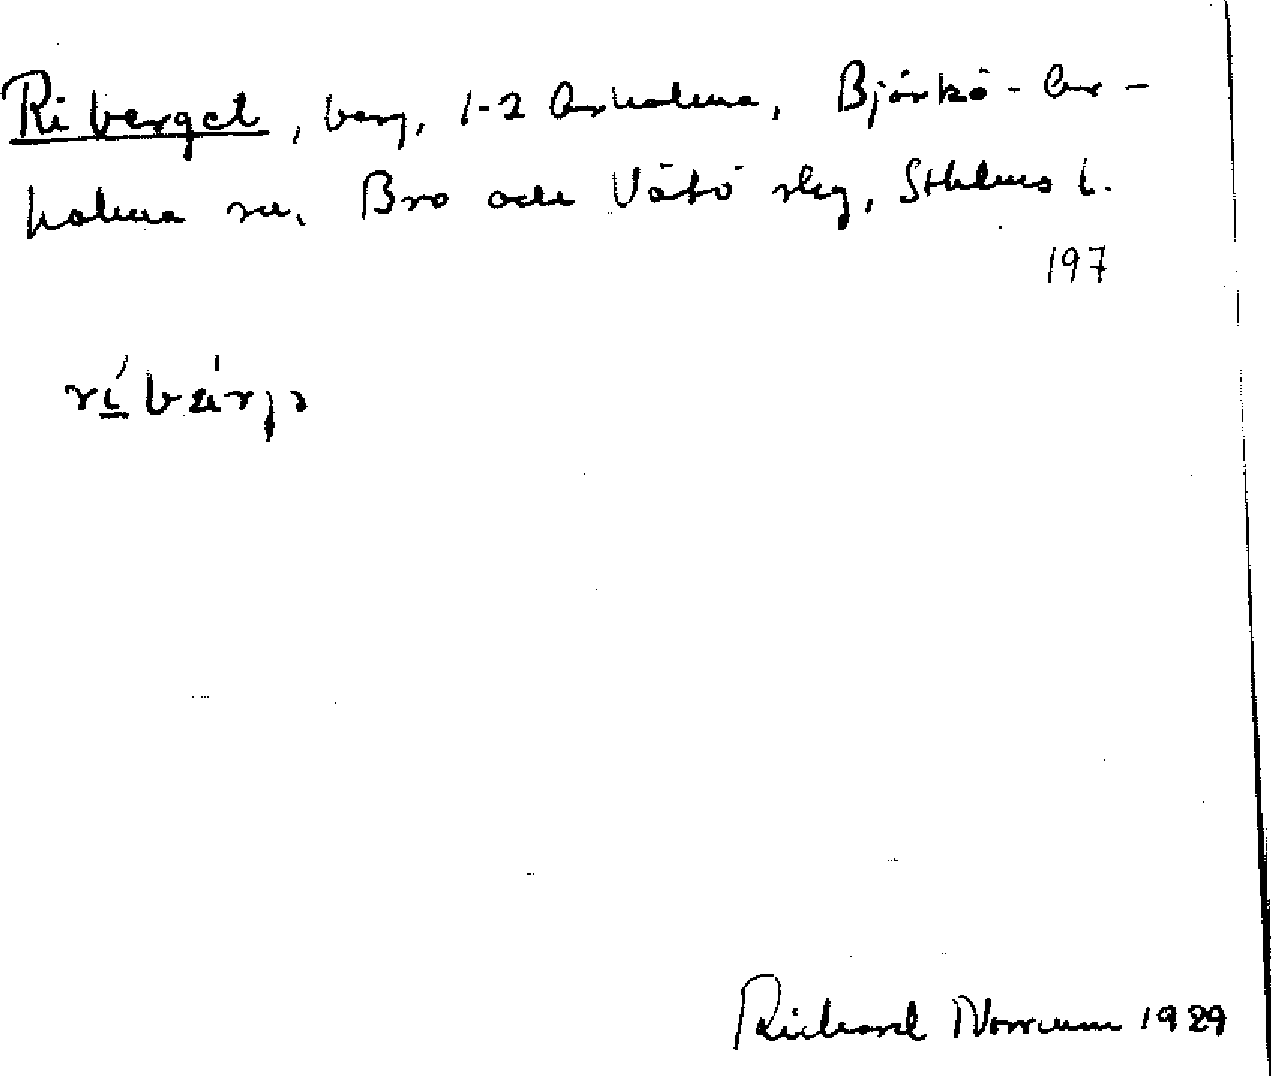 Riberget, berg, 1-2 Arholma, Björkö-Ar-
holma sn, Bro och Vätö skg, Sthlms l.
197
Richard Norrman 1929